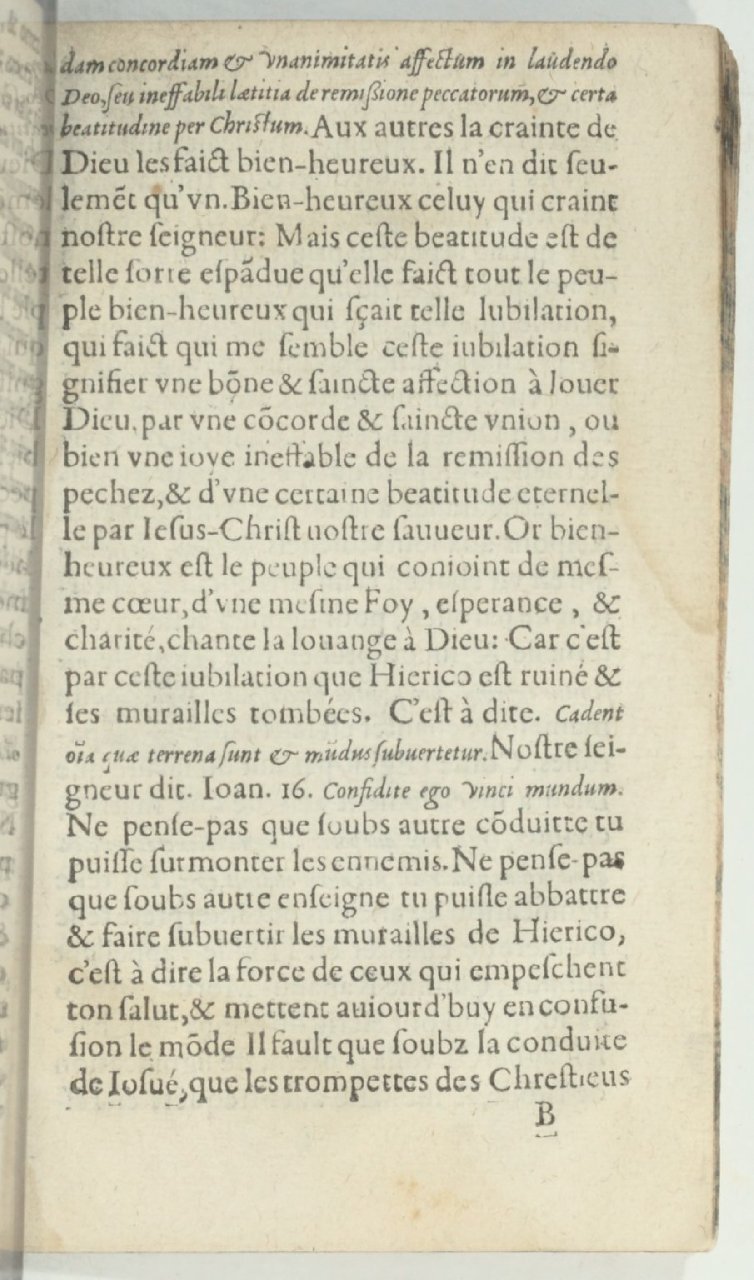 dam concordiam & vnanimitatis affectũm in laũdendo
Deo, ſeu ineffabili lætitia de remiſsione peccatorum̃, & certa
beatitudine per Chriſtum. Aux autres la crainte de
Dieu les faict bien-heureux. Il n'en dit ſeu-
lemẽt qu'vn. Bien-heureux celuy qui craint
noſtre ſeigneur: Mais ceſte beatitude eſt de
telle ſorte eſpãdue qu'elle faict tout le peu-
ple bien-heureux qui ſçait telle Iubilation,
qui faict qui me ſemble ceſte iubilation ſi-
gnifier vne bõne & ſaincte affection à louer
Dieu, par vne cõcorde & ſaincte vnion, ou
bien vne ioye ineffable de la remiſſion des
pechez, & d'vne certaine beatitude eternel-
le par Ieſus-Chriſt noſtre ſauueur. Or bien-
heureux eſt le peuple qui conioint de meſ-
me cœur, d'vne meſme Foy, eſperance, &
charité, chante la louange à Dieu: Car c'eſt
par ceſte iubilation que Hierico eſt ruiné &
ſes murailles tombées. C'eſt à dire. Cadent
oĩa quæ terrena ſunt & mũdus ſubuertetur. Noſtre ſei-
gneur dit. Ioan. 16. Confidite ego vinci mundum.
Ne penſe-pas que ſoubs autre cõduitte tu
puiſſe ſurmonter les ennemis. Ne penſe-pas
que ſoubs autre enſeigne tu puiſſe abbattre
& faire ſubuertir les murailles de Hierico,
c'eſt à dire la force de ceux qui empeſchent
ton ſalut, & mettent auiourd'huy en confu-
ſion le mõde Il fault que ſoubz la conduite
de Ioſué, que les trompettes des Chreſtiens
B